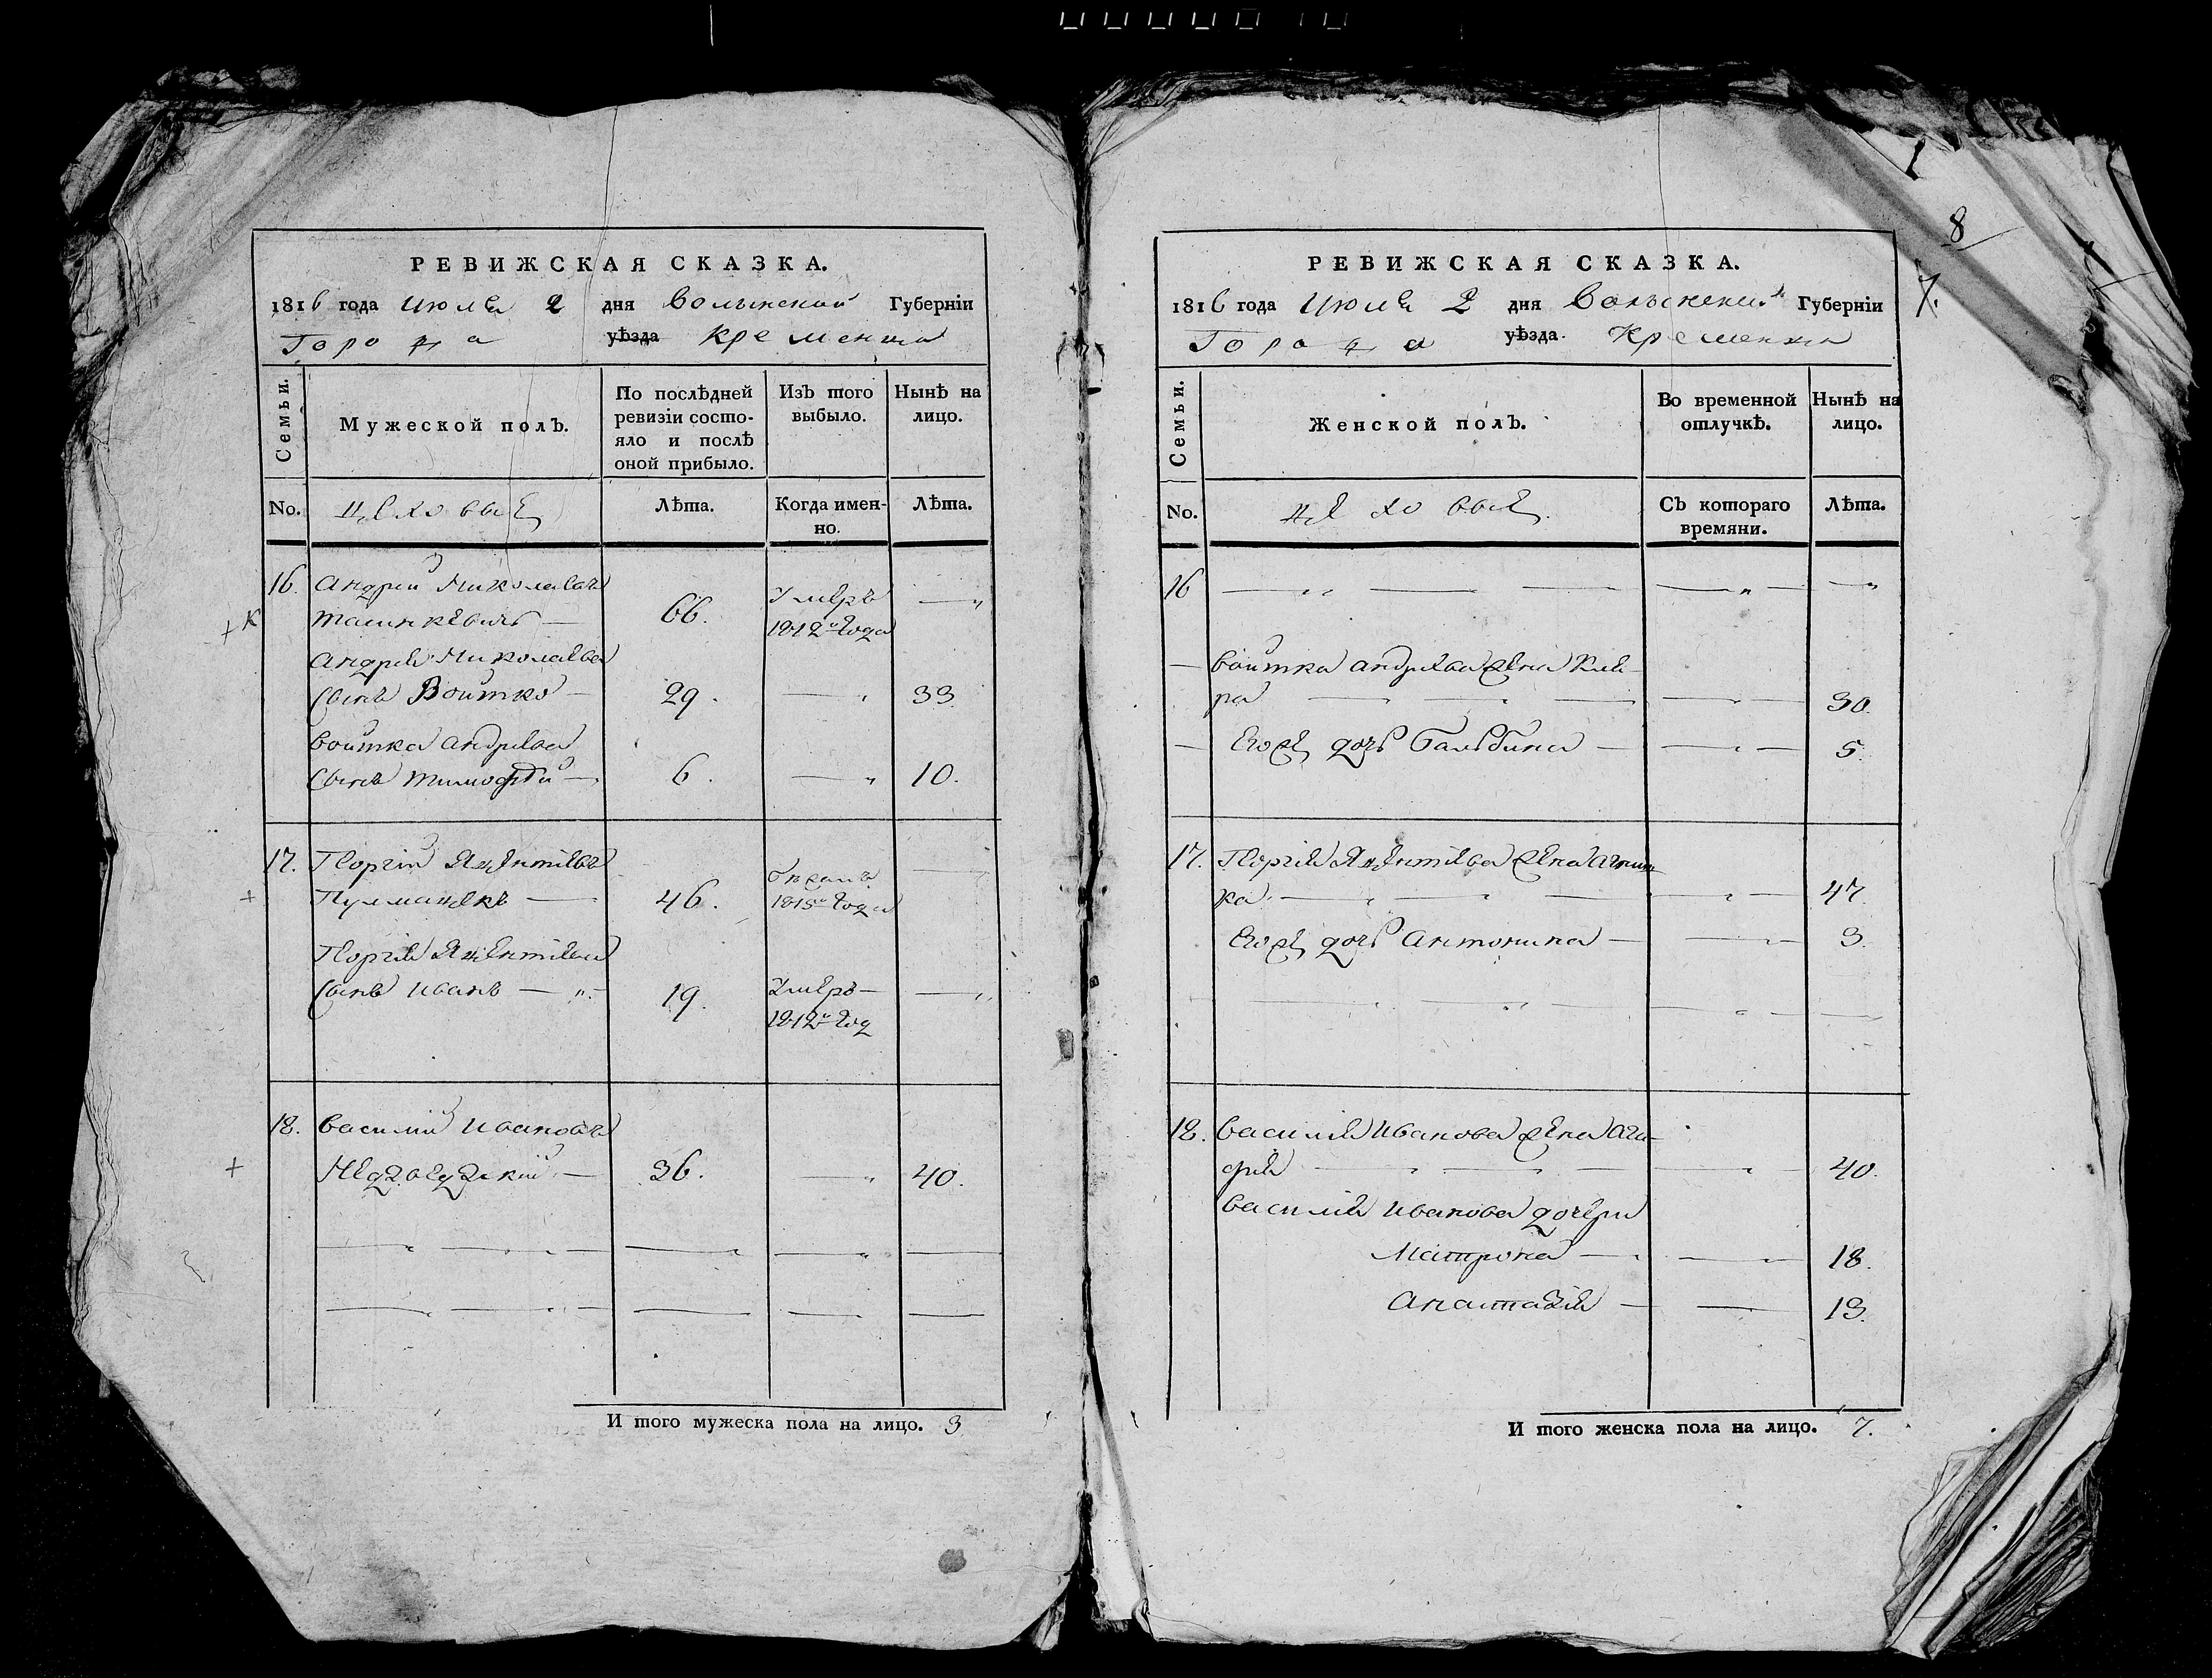 РЕВИЖСКАЯ СКАЗКА.
1816 года Июля 2 дня Волынской Губерніи
Города уѣзда Кременца
Семьи.
Мужеской полъ.
По послѣдней ревизіи состо-
яло и послѣ
оной прибыло.
Изъ того выбыло.
Нынѣ на лицо.
No.
Цеховые
Лѣта.
Когда имен-
но.
Лѣта.
16. Андрей Николаевъ
66. Умеръ
1812го года
Андрея Николаева
сынъ Войтко 29. 33.
Войтка Андреева
сынъ Тимофей 6. 10.
17. Георгій Яцентіевъ
46. бежалъ
1815го года
Георгія Яцентіева
сынъ Иванъ 19. Умеръ
1812го год
18. Василий Ивановъ
Недзведзскій 36. 40.
И того мужеска пола на лицо. 3
8
7.
РЕВИЖСКАЯ СКАЗКА.
1816 года Июля 2 дня Волынской Губерніи
Города уѣзда. Кременца
Семьи.
Женской полъ.
Во временной отлучкѣ.
Нынѣ на лицо.
No.
Цеховые.
Съ котораго времяни.
Лѣта.
16
Войтка Андреева жена Кле-
ра 30.
Его же дочь Бальбина 5.
17. Георгія Яцентіева жена
ка 47.
Его же дочь Антонина 3.
18. Василія Иванова жена Ага-
фія 40.
Василія Иванова дочери
Матрона 18.
Анастазія 13.
И того женска пола на лицо. 7.